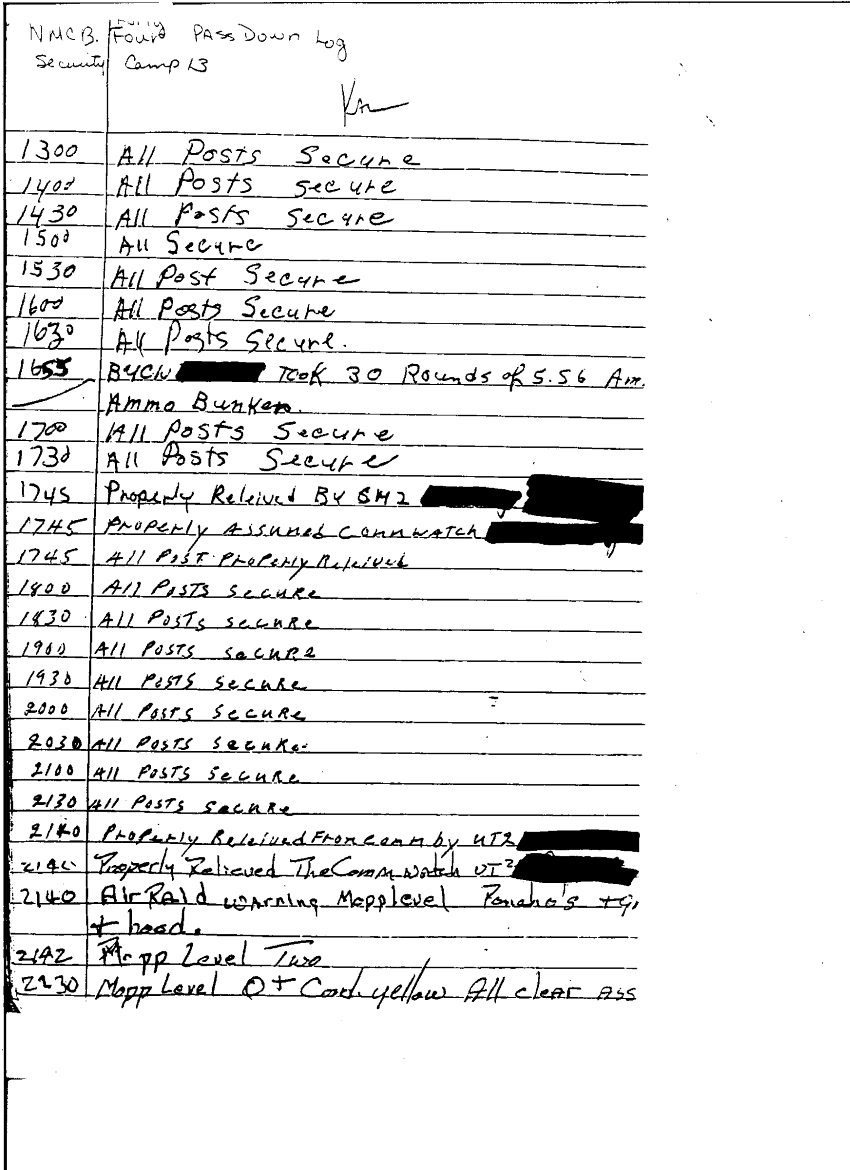 NMCB. Forty Four PASS Down Log
Security Camp 13
1300 All Posts Secure
1400 All Posts secure
1430 All Posts Secure
1500 All Secure
1530 All Post Secure
1600 All Posts Secure
1630 All Posts Secure.
1655 TOOK 30 Rounds of 5.56 Am.
Ammo Bunker.
1700 All Posts Secure
1730 All Posts Secure
1745 Properly Releived By
1745 Properly Assumed Commwatch
1745 All Post Properly Releived
1800 All Posts secure
1830 All Posts secure
1900 All Posts secure
1930 All Posts secure
2000 All Posts secure
2030 All Posts secure
2100 All Posts secure
2130 All Posts secure
2140 Properly Releived From comm by UT2
Properly Relieved The Comm Watch UT2
2140 Air Raid warning Mopp level +
+ hood.
2142 Mopp Level Two
2230 Mopp Level 0 + Cond. yellow All clear Ass